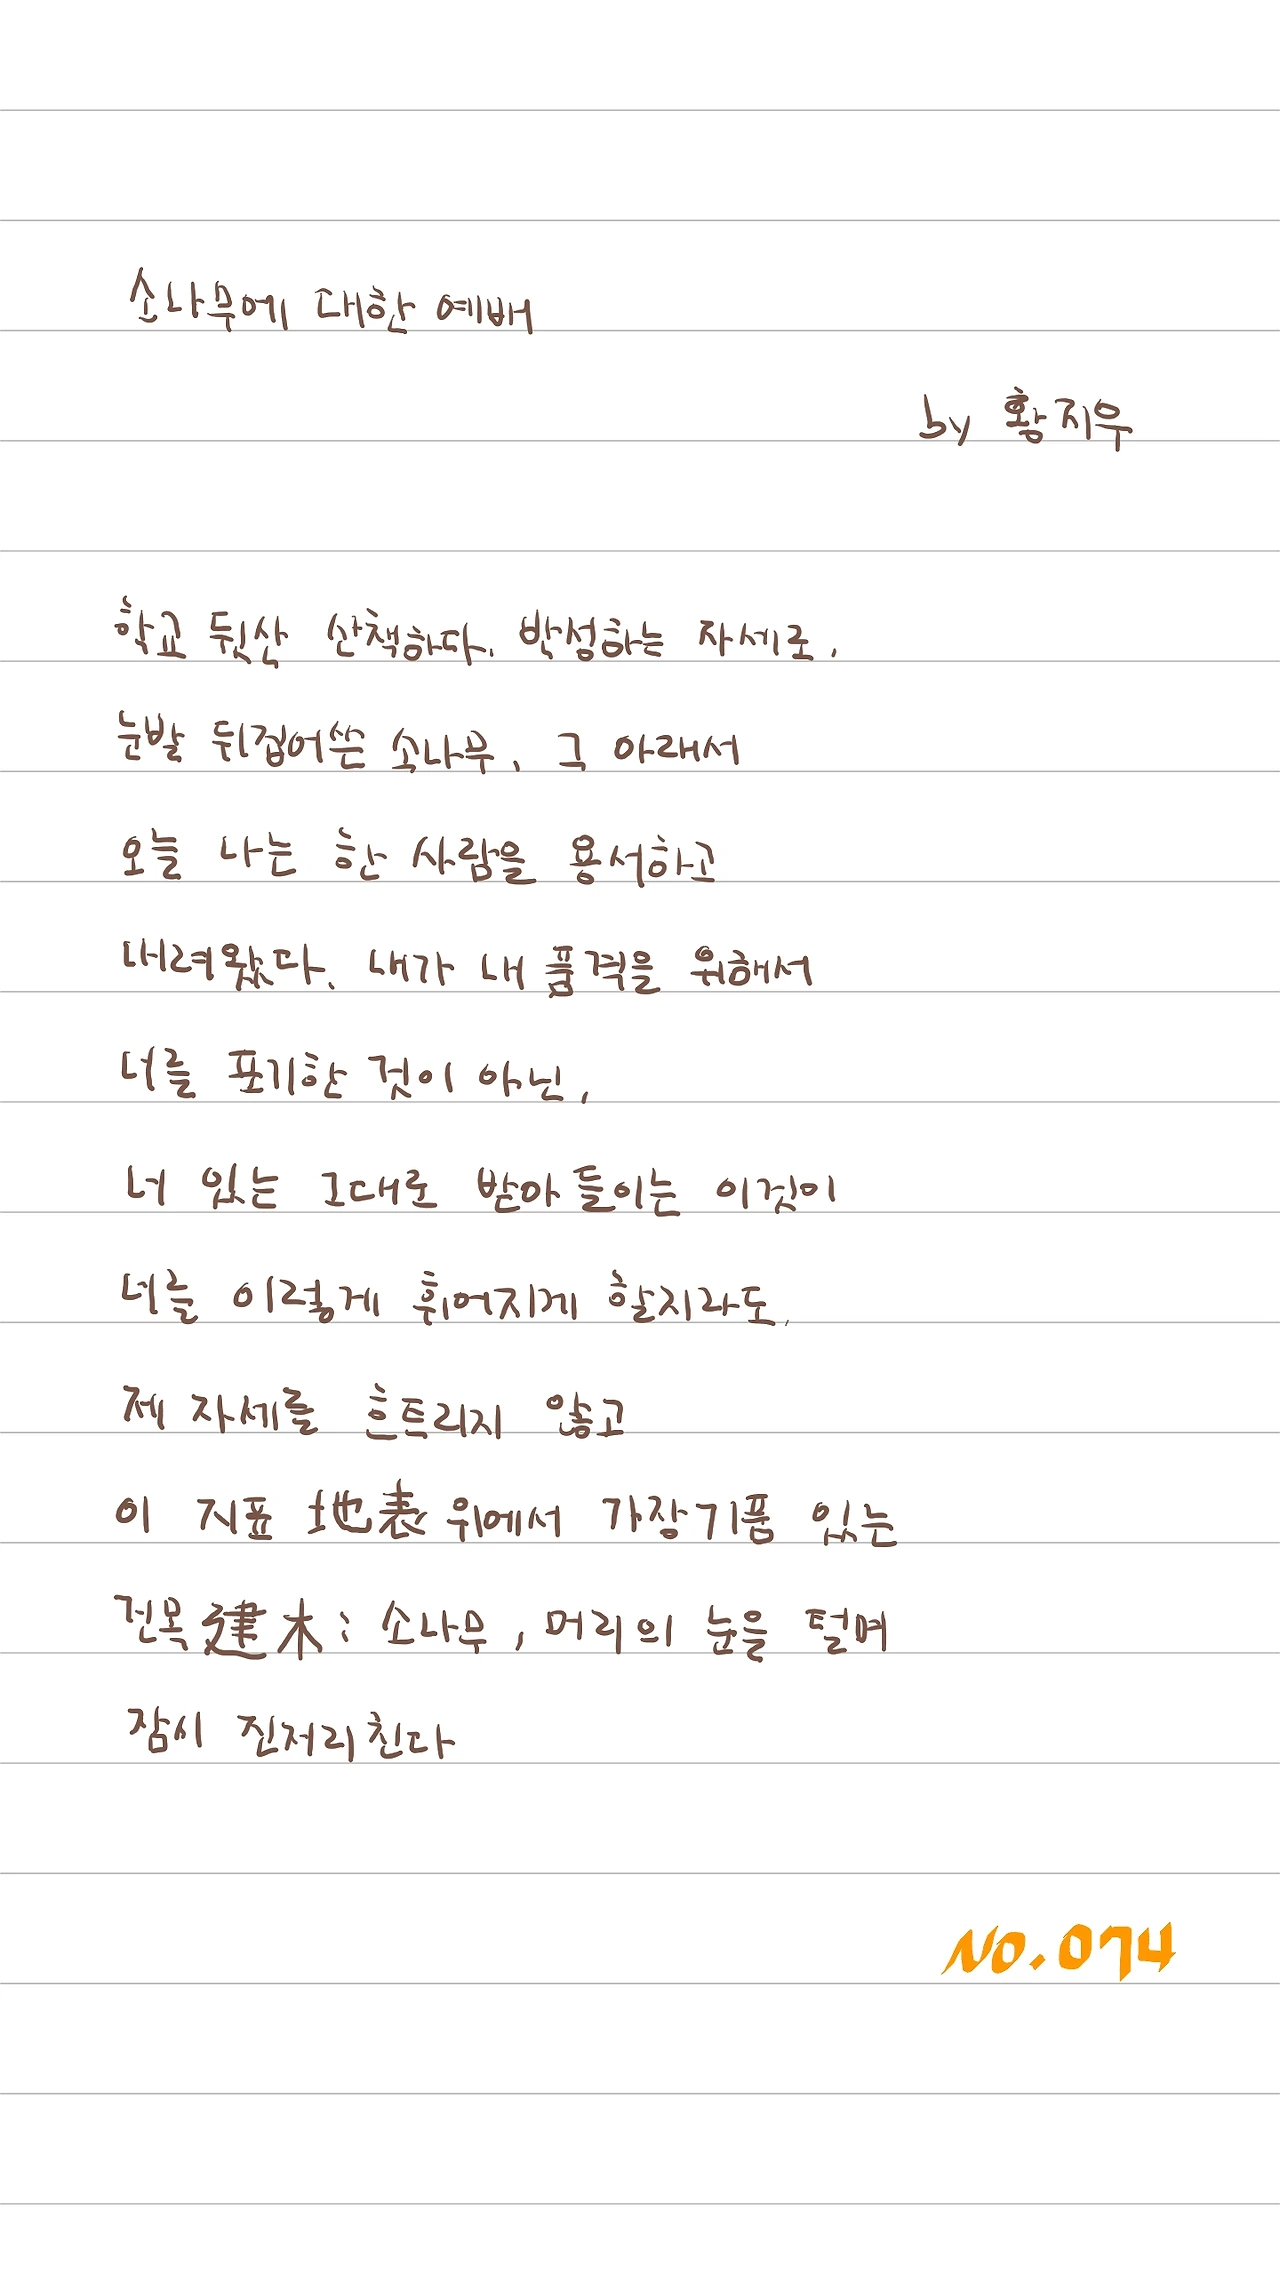 소나무에 대한 예배
by 황지우
학교 뒷산 산책하다, 반성하는 자세로,
눈발 뒤집어쓴 소나무, 그 아래서
오늘 나는 한 사람을 용서하고
내려왔다. 내가 내 품격을 위해서
너를 포기한 것이 아닌,
너 있는 그대로 받아들이는 이것이
너를 이렇게 휘어지게 할지라도,
제 자세를 흐트리지 않고
이 지표 地表 위에서 가장 기품 있는
건목 建木 ; 소나무, 머리의 눈을 털며
잠시 진저리친다
NO.074